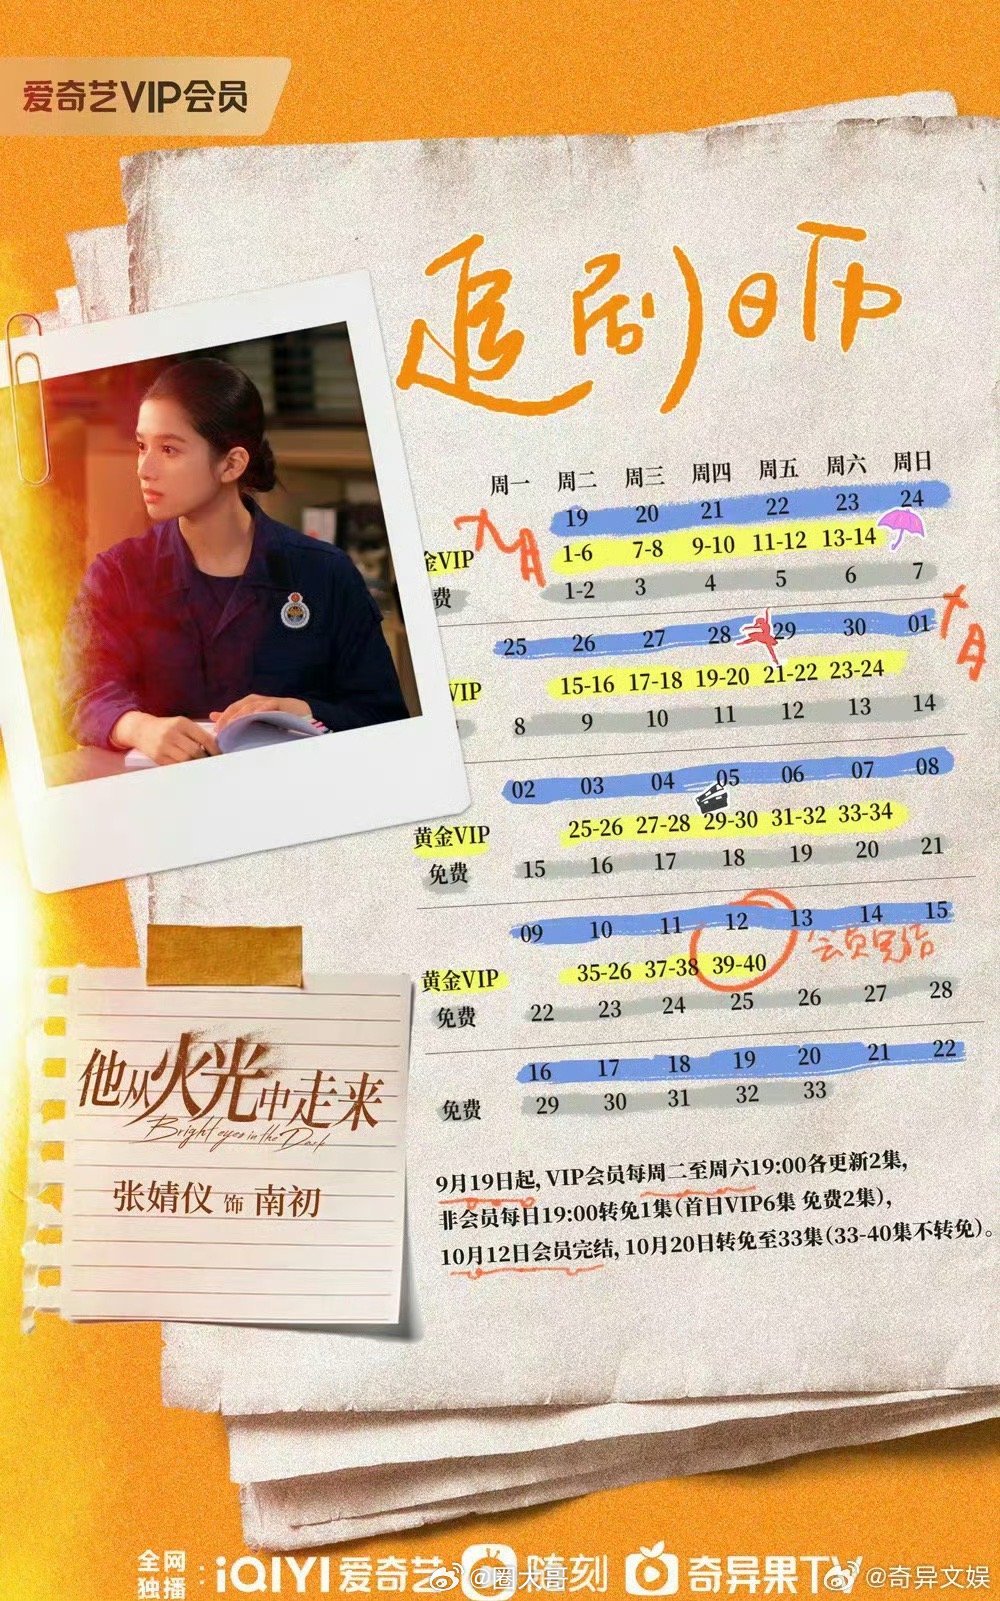 爱奇艺VIP会员
追剧日历
周一 周二 周三 周四 周五 周六 周日
九月
19 20 21 22 23 24
金VIP 1-6 7-8 9-10 11-12 13-14
费 1-2 3 4 5 6 7
十月
25 26 27 28 29 30 01
VIP 15-16 17-18 19-20 21-22 23-24
8 9 10 11 12 13 14
02 03 04 05 06 07 08
黄金VIP 25-26 27-28 29-30 31-32 33-34
免费 15 16 17 18 19 20 21
09 10 11 12 13 14 15
会员完结
黄金VIP 35-26 37-38 39-40
免费 22 23 24 25 26 27 28
16 17 18 19 20 21 22
免费 29 30 31 32 33
他从火光中走来
Bright eyes in the Dark
张婧仪 饰 南初
9月19日起, VIP会员每周二至周六19:00各更新2集,
非会员每日19:00转免1集(首日VIP6集 免费2集),
10月12日会员完结, 10月20日转免至33集(33-40集不转免)。
全网独播: iQIYI 爱奇艺 随刻 奇异果TV
@圈太哥
@奇异文娱